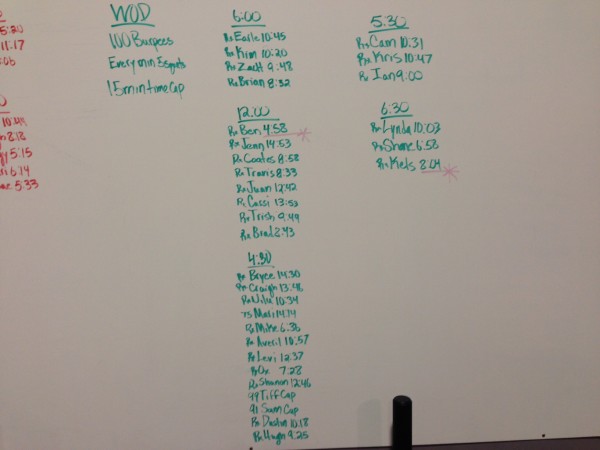 5:20
11:17
10:44
8:18
5:15
6:14
5:33
WOD
100 Burpees
Every min 5 squats
15 min time Cap
6:00
Rx Earle 10:45
Rx Kim 10:20
Rx Zach 9:48
Rx Brian 8:32
12:00
Rx Ben 4:58
Rx Jann 14:53
Rx Coates 8:58
Rx Travis 8:33
Rx Juan 12:42
Rx Cassi 13:53
Rx Trish 9:49
Rx Brad 8:43
4:30
Rx Bryce 14:30
Rx Craigh 13:48
10:34
75 Mari 14:14
Rx Mike 6:36
Rx Averil 10:57
Rx Levi 12:37
Rx Ox 7:28
Rx Shanon 12:46
99 Tiff Cap
91 Sam Cap
Rx Dustin 10:18
Rx 9:25
5:30
Rx Cam 10:31
Rx Kris 10:47
Rx Ian 9:00
6:30
Rx Lynda 10:03
Rx Shane 6:58
Rx Kels 8:04